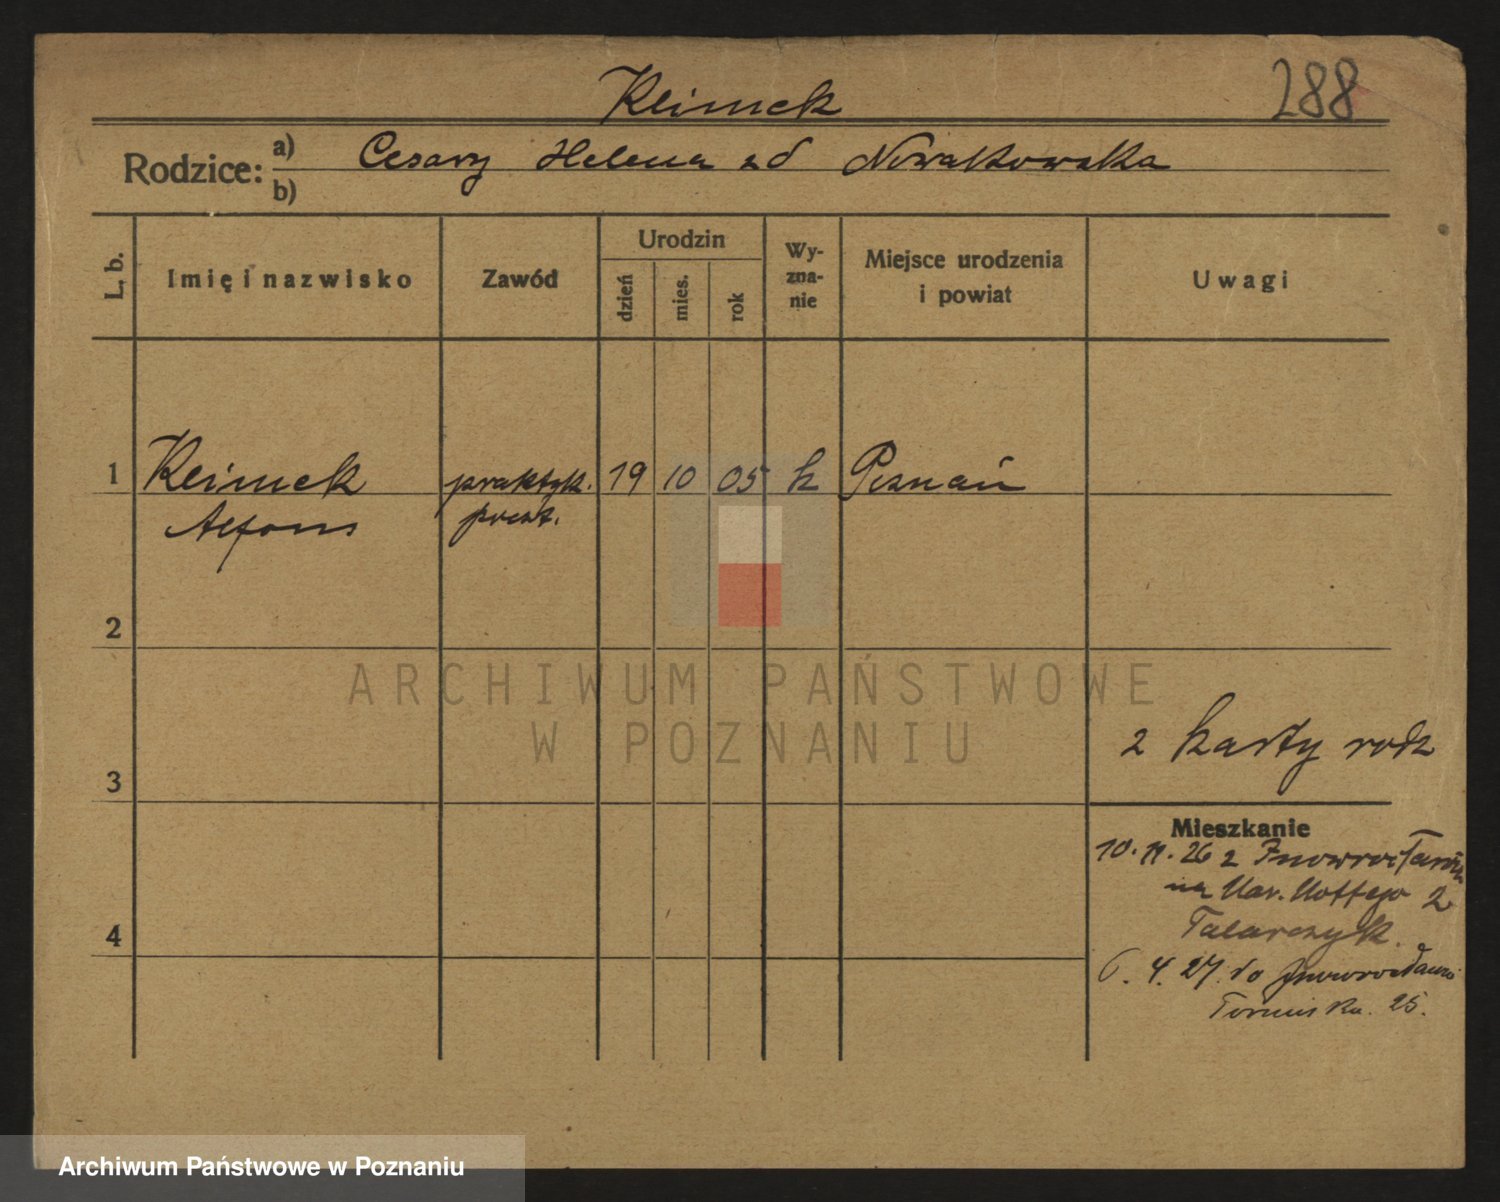 Klimek
288
Rodzice:
a) Cesary Helena zd Nowakowska
b)
L. b.
Imię i nazwisko
Zawód
Urodzin
dzień
mies.
rok
Wy-
zna-
nie
Miejsce urodzenia
i powiat
Uwagi
1 Klimek praktyk. 19 10 05 k Poznań
Alfons poczt.
2
ARCHIWUM PAŃSTWOWE
W POZNANIU
2 karty rodz
3
Mieszkanie
10. 11. 26 z Inowrocławia
na Mar. Mottego 2
Talarczyk.
4
6. 4. 27 do Inowrocławia
Toruńska. 25.
Archiwum Państwowe w Poznaniu